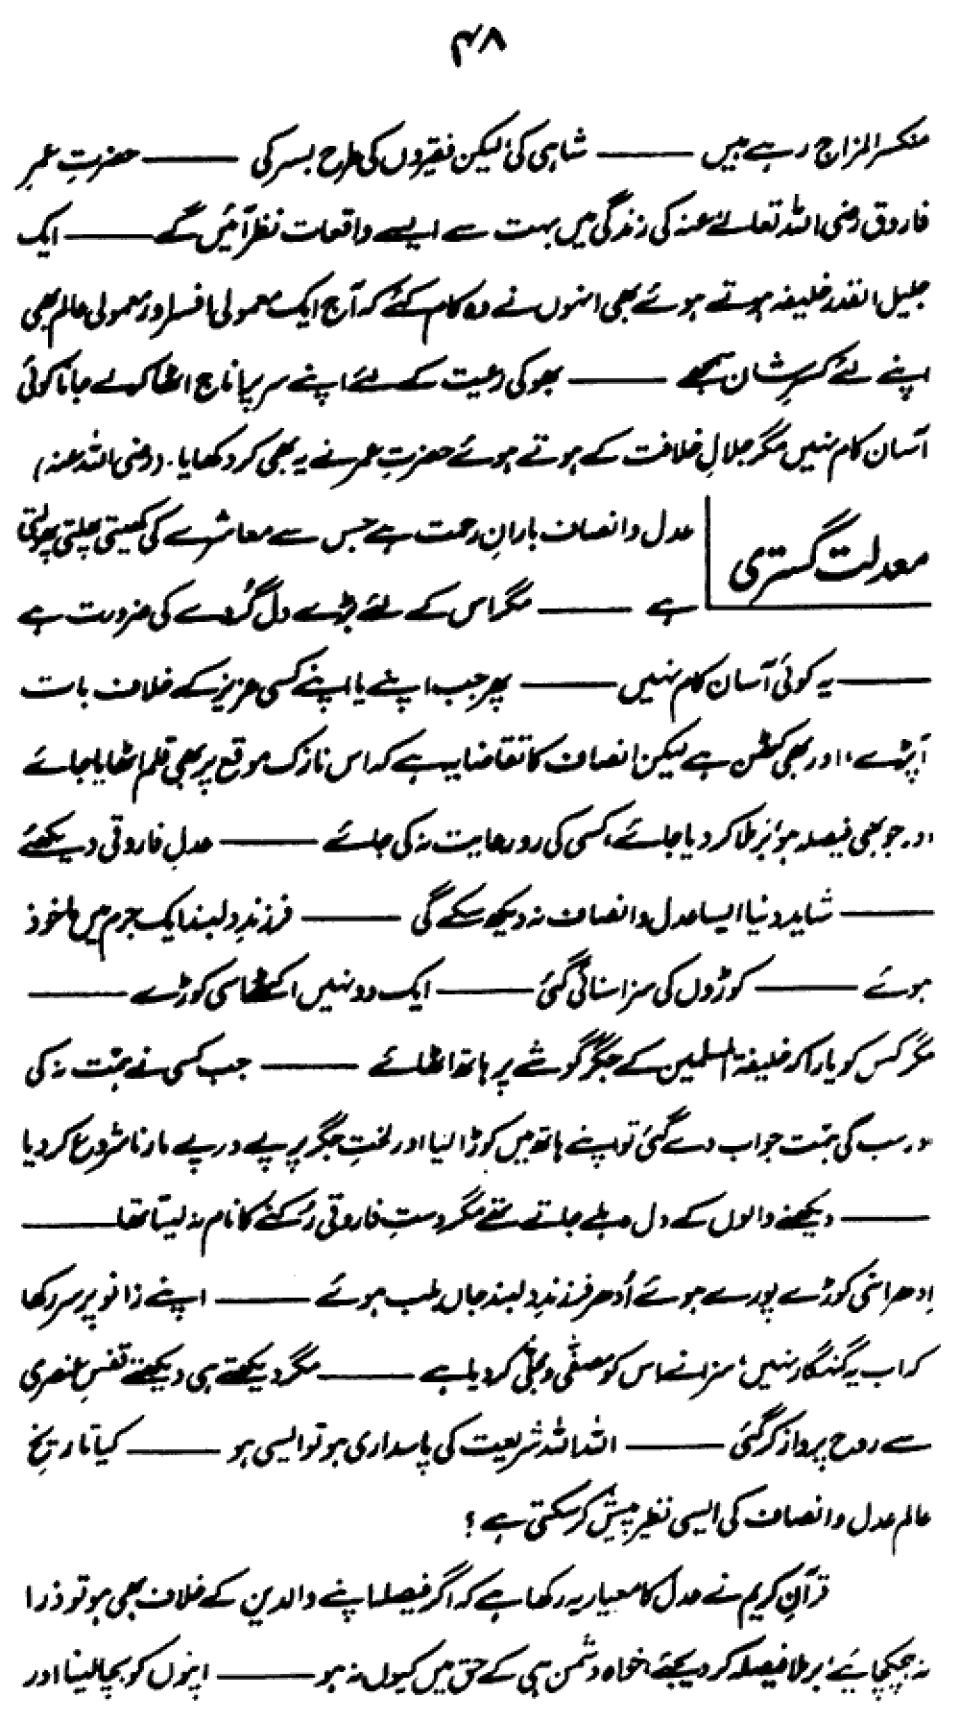 ۴۸
منکسر المزاج رہے ہیں ——— شاہی کی لیکن فقیروں کی طرح بسر کی ——— حضرتِ عمر
فاروق رضی اللہ تعالےٰ عنہ کی زندگی میں بہت سے ایسے واقعات نظر آئیں گے ——— ایک
جلیل القدر خلیفہ ہوتے ہوئے بھی انہوں نے وہ کام کئے کہ آج ایک معمولی افسر اور معمولی عالم بھی
اپنے لئے کسرِ شان سمجھے ——— بھوکی رعیت کے لئے اپنے سر پر اناج اٹھا کر لے جانا کوئی
آسان کام نہیں مگر جلالِ خلافت کے ہوتے ہوئے حضرتِ عمر نے یہ بھی کر دکھایا۔ (رضی اللہ عنہ)
معدلت گستری
عدل و انصاف بارانِ رحمت ہے جس سے معاشرے کی کھیتی پھلتی پھولتی
ہے ——— مگر اس کے لئے بڑے دل گُردے کی ضرورت ہے
——— یہ کوئی آسان کام نہیں ——— پھر جب اپنے یا اپنے کسی عزیز کے خلاف بات
آپڑے، اور بھی کٹھن ہے لیکن انصاف کا تقاضا یہ ہے کہ اس نازک موقع پر بھی قلم اٹھایا جائے
اور جو بھی فیصلہ ہو، بَرملا کر دیا جائے، کسی کی رو رعایت نہ کی جائے ——— عدلِ فاروقی دیکھئے
——— شاید دنیا ایسا عدل و انصاف نہ دیکھ سکے گی ——— فرزندِ دلبند ایک جرم میں ماخوذ
ہوئے ——— کوڑوں کی سزا سنائی گئی ——— ایک دو نہیں اکٹھے اسی کوڑے ———
مگر کس کو یارا کہ خلیفۃ المسلمین کے جگر گوشے پر ہاتھ اٹھائے ——— جب کسی نے ہمّت نہ کی
اور سب کی ہمّت جواب دے گئی تو اپنے ہاتھ میں کوڑا لیا اور لختِ جگر پر پے در پے مارنا شروع کر دیا
——— دیکھنے والوں کے دل دہلے جاتے تھے مگر دستِ فاروقی رُکنے کا نام نہ لیتا تھا ———
اِدھر اسّی کوڑے پورے ہوئے اُدھر فرزندِ دلبند جاں بلب ہوئے ——— اپنے زانو پر سر رکھا
کہ اب یہ گنہگار نہیں، سزا نے اس کو مصفّٰی و مجلّٰی کر دیا ہے ——— مگر دیکھتے ہی دیکھتے قفسِ عنصری
سے روح پرواز کر گئی ——— اللہ اللہ شریعت کی پاسداری ہو تو ایسی ہو ——— کیا تاریخِ
عالم عدل و انصاف کی ایسی نظیر پیش کر سکتی ہے ؟
قرآنِ کریم نے عدل کا معیار یہ رکھا ہے کہ اگر فیصلہ اپنے والدین کے خلاف بھی ہو تو ذرا
نہ ہچکچائیے، برملا فیصلہ کر دیجئے، خواہ دشمن ہی کے حق میں کیوں نہ ہو ——— اپنوں کو بچا لینا اور